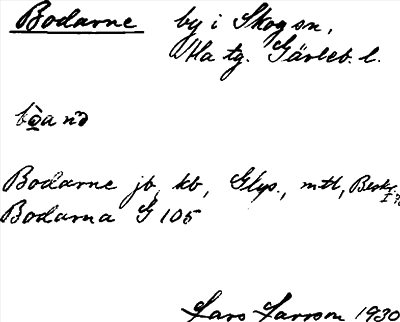 Bodarne by i Skog sn,
Ala tg. Gävleb. l.
Bodarne jb, kb, Glyp., mtl, Beskr. I
Bodarna G 105
Lars Larsson 1930